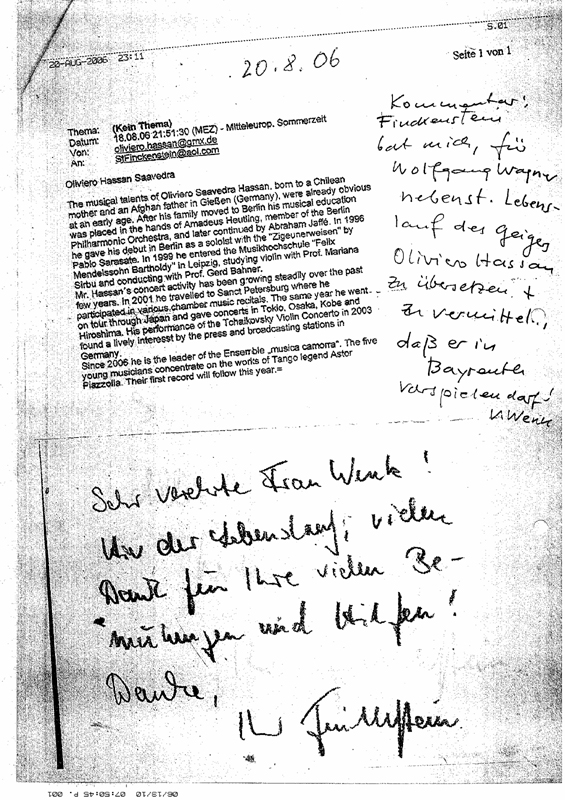 S.01
20-AUG-2006 23:11
20.8.06
Seite 1 von 1
Thema: (Kein Thema)
Datum: 18.08.06 21:51:30 (MEZ) - Mitteleurop. Sommerzeit
Von: oliviero.hassan@gmx.de
An: StFinckenstein@aol.com
Oliviero Hassan Saavedra
The musical talents of Oliviero Saavedra Hassan, born to a Chilean
mother and an Afghan father in Gießen (Germany), were already obvious
at an early age. After his family moved to Berlin his musical education
was placed in the hands of Amadeus Heutling, member of the Berlin
Philharmonic Orchestra, and later continued by Abraham Jaffé. In 1996
he gave his debut in Berlin as a soloist with the "Zigeunerweisen" by
Pablo Sarasate. In 1999 he entered the Musikhochschule "Felix
Mendelssohn Bartholdy" in Leipzig, studying violin with Prof. Mariana
Sirbu and conducting with Prof. Gerd Bahner.
Mr. Hassan's concert activity has been growing steadily over the past
few years. In 2001 he travelled to Sanct Petersburg where he
participated in various chamber music recitals. The same year he went
on tour through Japan and gave concerts in Tokio, Osaka, Kobe and
Hiroshima. His performance of the Tchaikovsky Violin Concerto in 2003
found a lively interesst by the press and broadcasting stations in
Germany.
Since 2006 he is the leader of the Ensemble „musica camorra". The five
young musicians concentrate on the works of Tango legend Astor
Piazzolla. Their first record will follow this year.=
Kommentar:
Finckenstein
bat mich, für
Wolfgang Wagner
nebenst. Lebens-
lauf des Geigers
Oliviero Hassan
zu übersetzen +
zu vermitteln,
daß er in
Bayreuth
vorspielen darf!
Wenk
Sehr verehrte Frau Wenk!
Hier der Lebenslauf; vielen
Dank für Ihre vielen Be-
mühungen und Hilfen!
Danke,
Ihr Finckenstein
06/13/10 07:50:45 P. 001